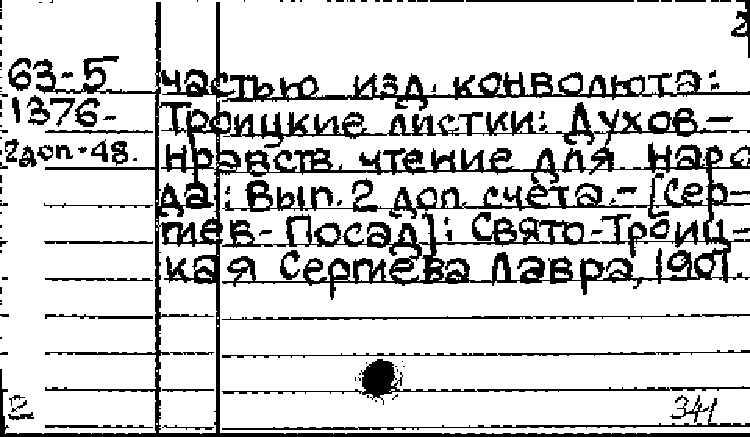 2
63-5 частью изд. конволюта:
1376- Троицкие листки: Духов.-
2доп-48. нравств. чтение для наро
да: Вып. 2 доп. счёта.- [Сер-
гиев-Посад]: Свято-Троиц-
кая Сергиева Лавра, 1901.
2 341